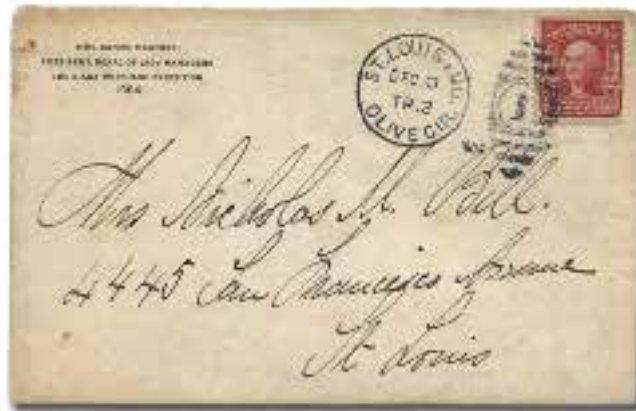 PRESIDENT, BOARD OF LADY MANAGERS
ST. LOUIS, MO.
DEC
TR. 2
OLIVE CIR.
Mrs Nicholas M. Bell.
4445 San Francisco Avenue
St Louis